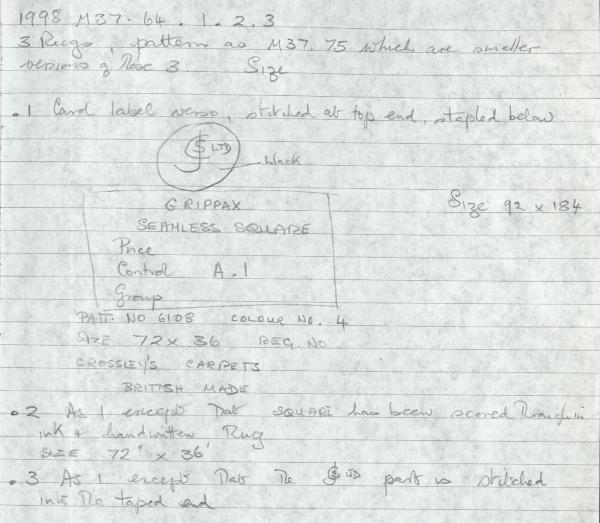 1998 M37.64.1.2.3
3 Rugs, pattern as M37.75 which are smaller
versions of these 3. Size
.1 Card label verso, stitched at top end, stapled below
LTD
black
GRIPPAX
Size 92 x 184
SEAMLESS SQUARE
Price
Control A.1
Group
PATT. NO 6108 COLOUR NO. 4
SIZE 72 x 36 REG. NO
CROSSLEY'S CARPETS
BRITISH MADE
.2 As 1 except that SQUARE has been scored through in
ink + handwritten Rug
SIZE 72" x 36"
.3 As 1 except that the LTD part is stitched
into the taped end